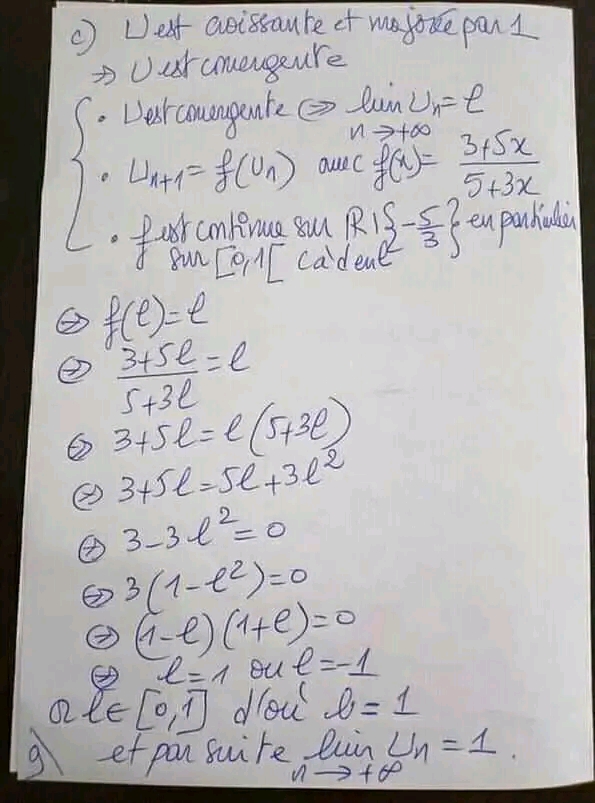 c) U est croissante et majorée par 1
⇒ U est convergente
{ • U est convergente ⇔ lim Un = l
n → +∞
• Un+1 = f(Un) avec f(x) = (3+5x)/(5+3x)
• f est continue sur R\{-5/3} en particulier
sur [0,1[ càd en l
⇔ f(l) = l
⇔ (3+5l)/(5+3l) = l
⇔ 3+5l = l(5+3l)
⇔ 3+5l = 5l+3l²
⇔ 3-3l² = 0
⇔ 3(1-l²) = 0
⇔ (1-l)(1+l) = 0
⇔ l=1 ou l=-1
or l ∈ [0,1] d'où l = 1
9\ et par suite lim Un = 1.
n → +∞